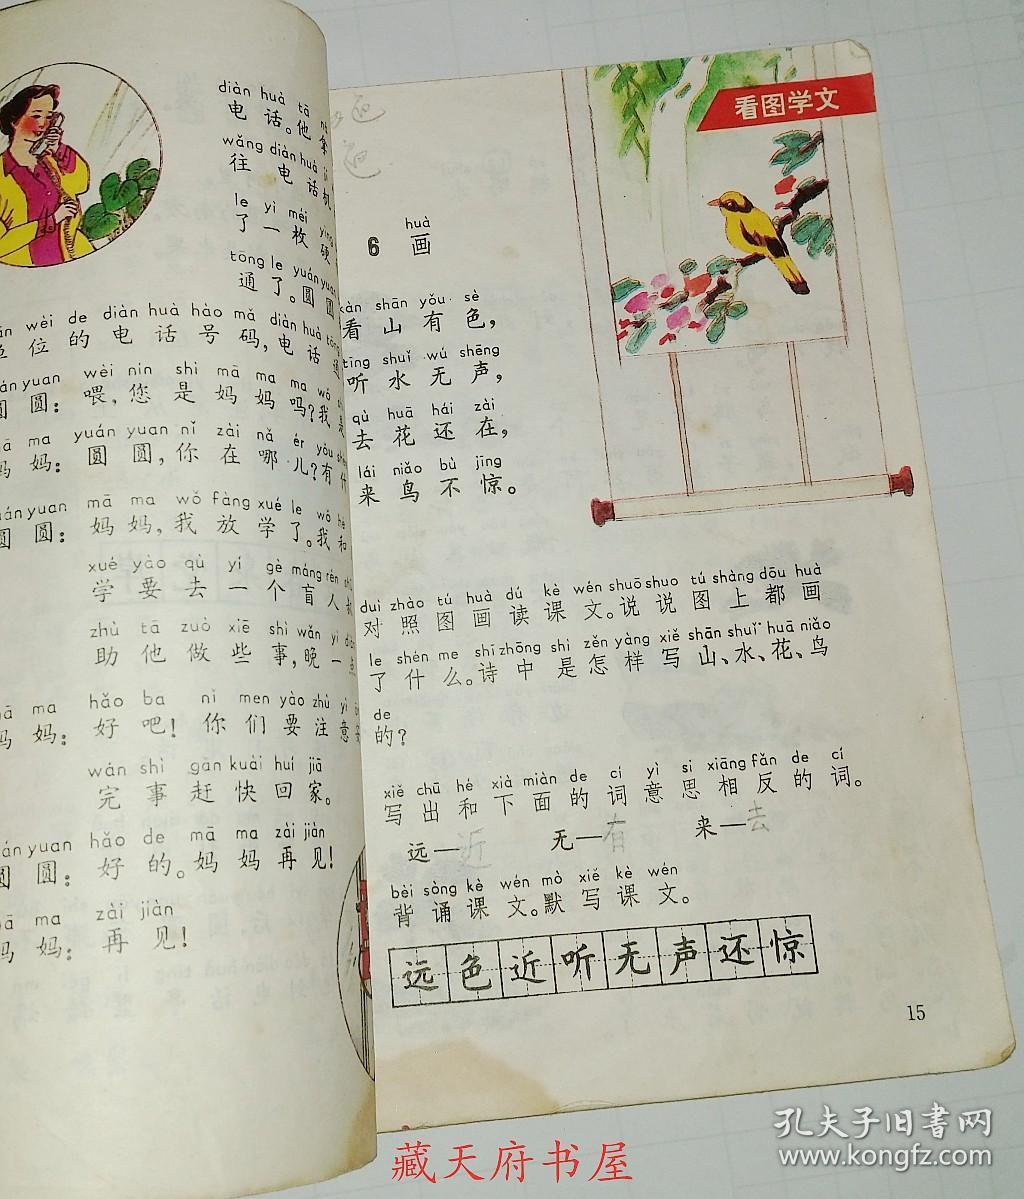 diàn huà tā
电 话。他 拿
wǎng diàn huà
往 电 话 机
le yì méi yìng
了 一 枚 硬
tōng le yuán yuan
通 了。圆 圆
wèi de diàn huà hào mǎ, diàn huà
位 的 电 话 号 码, 电 话 通
yuan wèi nín shì mā ma ma wǒ
圆: 喂, 您 是 妈 妈 吗? 我 是
ma yuán yuan nǐ zài nǎ ér yǒu
妈: 圆 圆, 你 在 哪 儿? 有 什
yuan mā ma wǒ fàng xué le wǒ hé
圆: 妈 妈, 我 放 学 了。我 和
xué yào qù yí gè máng rén
学 要 去 一 个 盲 人
zhù tā zuò xiē shì wǎn yì diǎn
助 他 做 些 事, 晚 一 点
ma hǎo ba nǐ men yào zhù yì
妈: 好 吧! 你 们 要 注 意 安
wán shì gǎn kuài huí jiā
完 事 赶 快 回 家。
yuan hǎo de mā ma zài jiàn
圆: 好 的。妈 妈 再 见!
ma zài jiàn
妈: 再 见!
看图学文
huà
6 画
kàn shān yǒu sè
看 山 有 色,
tīng shuǐ wú shēng
听 水 无 声,
qù huā hái zài
去 花 还 在,
lái niǎo bù jīng
来 鸟 不 惊。
duì zhào tú huà dú kè wén shuō shuo tú shàng dōu huà
对 照 图 画 读 课 文。说 说 图 上 都 画
le shén me shī zhōng shì zěn yàng xiě shān shuǐ huā niǎo
了 什 么。诗 中 是 怎 样 写 山、水、花、鸟
de
的?
xiě chū hé xià miàn de cí yì si xiāng fǎn de cí
写 出 和 下 面 的 词 意 思 相 反 的 词。
远—近 无—有 来—去
bèi sòng kè wén mò xiě kè wén
背 诵 课 文。默 写 课 文。
远 色 近 听 无 声 还 惊
15
孔夫子旧书网
www.kongfz.com
藏天府书屋